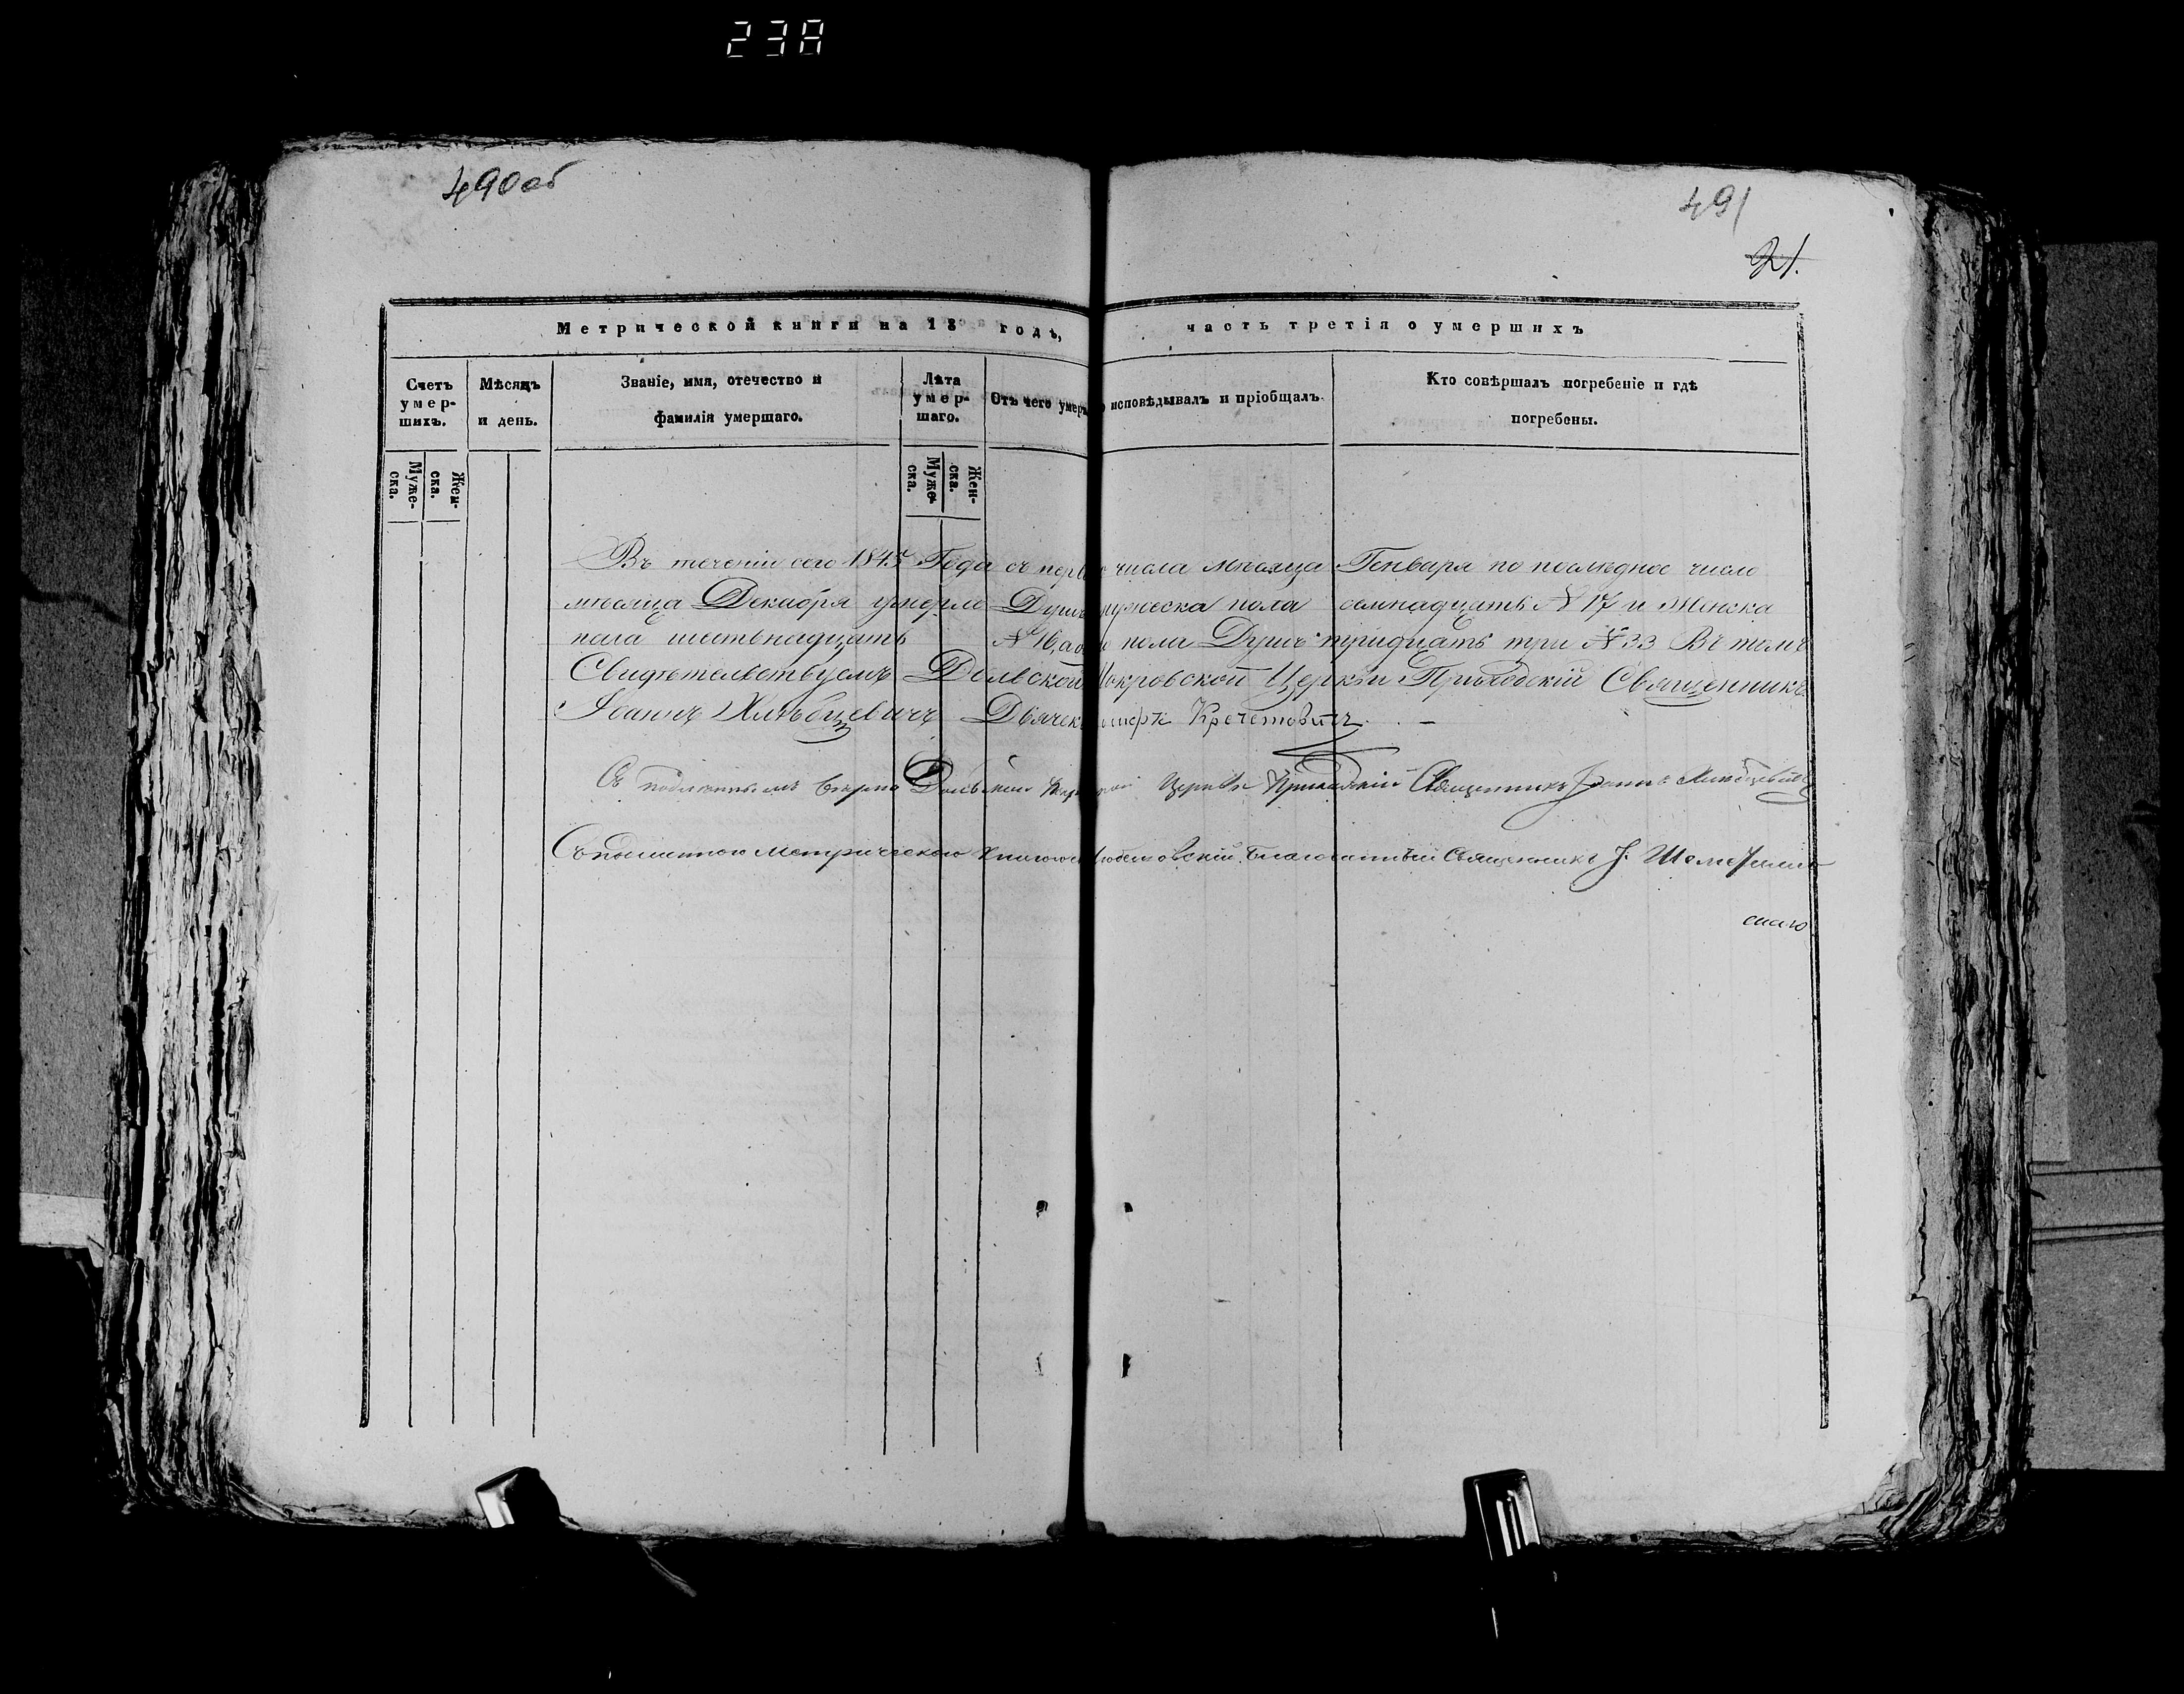 238
490об
491
21.
Метрической книги на 18 годъ, часть третія о умершихъ
Счетъ умер-шихъ.
Мѣсяцъ и день.
Званіе, имя, отечество и фамилія умершаго.
Лѣта умер-шаго.
Отъ чего умеръ
исповѣдывалъ и пріобщалъ.
Кто совѣршалъ погребеніе и гдѣ погребены.
Муже-ска.
Жен-ска.
Муже-ска.
Жен-ска.
Въ теченіи сего 1845 Года съ перв числа мѣсяца Генваря по послѣднее число
мѣсяца Декабря умерло Душъ мужеска пола семнадцать № 17 и Женска
пола шестьнадцать № 16, а пола Душъ тридцать три № 33 Въ томъ
Свидѣтельствуемъ Дольской Покровской Церкви Приходскій Священникъ
Іоаннъ Хлѣбцевичъ Дьячекъ Кречетовичъ
Съ подлиннымъ вѣрно Дольской Церкви Приходскій Священникъ Іоаннъ Хлѣбцевичъ
Съ подлинною Метрическою Книгою Благочинный Священникъ І.